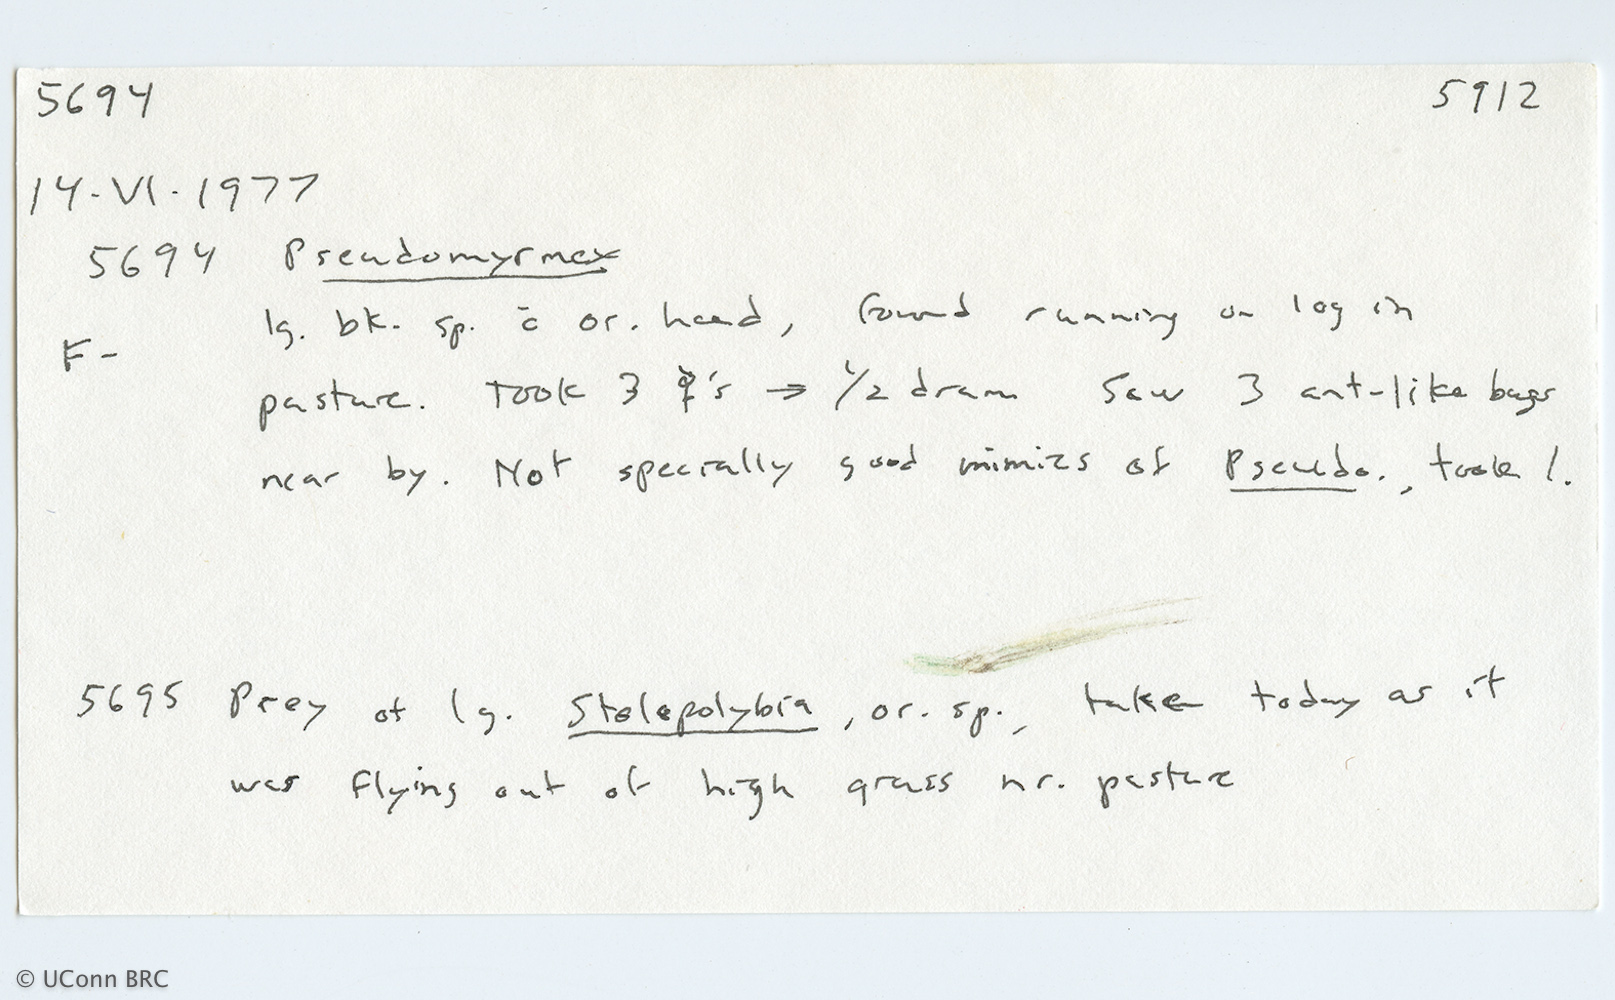 5694 5912
14-VI-1977
5694 Pseudomyrmex
lg. bk. sp. c̄ or. head, found running on log in
F-
pasture. Took 3 ☿'s → 1/2 dram Saw 3 ant-like bugs
near by. Not specially good mimics of Pseudo., took 1.
5695 Prey of lg. Stelopolybia, or. sp., taken today as it
was flying out of high grass nr. pasture
© UConn BRC